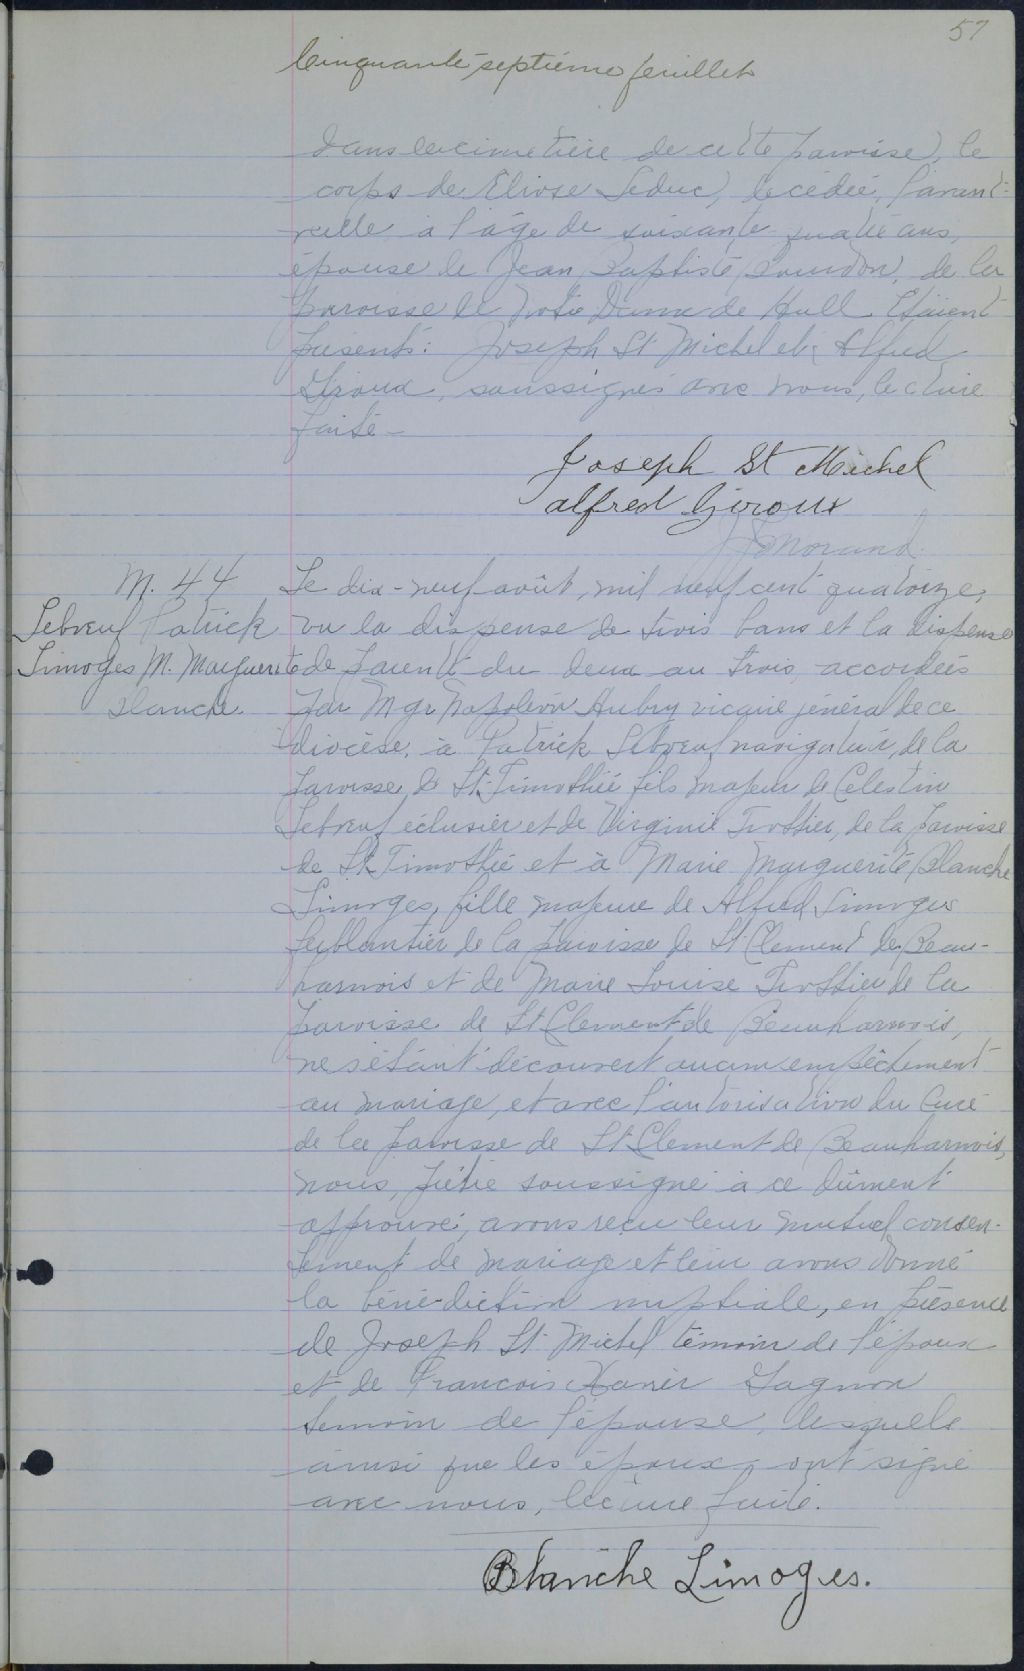 57
Cinquante-septième feuillet
dans le cimetière de cette paroisse, le
corps de Eliose Leduc, décédée, l'avant-
veille à l'âge de soixante quatre ans,
épouse de Jean Baptiste Bourdon, de la
paroisse de Notre Dame de Hull. Etaient
présents: Joseph St Michel et Alfred
Giroux, soussignés avec nous, lecture
faite -
Joseph St Michel
alfred Giroux
Morand
M. 44
Lebœuf Patrick
Limoges M. Marguerite
Blanche.
Le dix-neuf août, mil neuf cent quatorze,
vu la dispense de trois bans et la dispense
de parenté du deux au trois, accordées
par Mgr Napoléon Aubry vicaire général de ce
diocèse, à Patrick Lebœuf navigateur, de la
paroisse de St-Timothée fils majeur de Célestin
Lebœuf éclusier et de Virginie Trottier, de la paroisse
de St Timothée et à Marie Marguerite Blanche
Limoges, fille majeure de Alfred Limoges
ferblantier de la paroisse de St Clement de Beau-
harnois et de Marie Louise Trottier de la
paroisse de St Clement de Beauharnois,
ne s'étant découvert aucun empêchement
au mariage, et avec l'autorisation du Curé
de la paroisse de St Clement de Beauharnois,
nous, prêtre soussigné à ce dûment
approuvé, avons reçu leur mutuel consen-
tement de mariage et leur avons donné
la bénédiction nuptiale, en présence
de Joseph St Michel témoin de l'époux
et de Francois Xavier Gagnon
temoin de l'épouse, lesquels
ainsi que les époux, ont signé
avec nous, lecture faite.
Blanche Limoges.